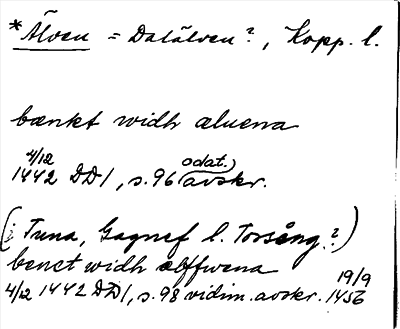 *Älven = Dalälven?, Kopp. l.
bænkt widh æluena
4/12 1442 DD1, s. 96 (odat.) avskr.
(i Tuna, Gagnef l. Torsång?)
benct widh ælffwena
4/12 1442 DD1, s. 98 vidim. avskr. 19/9 1456